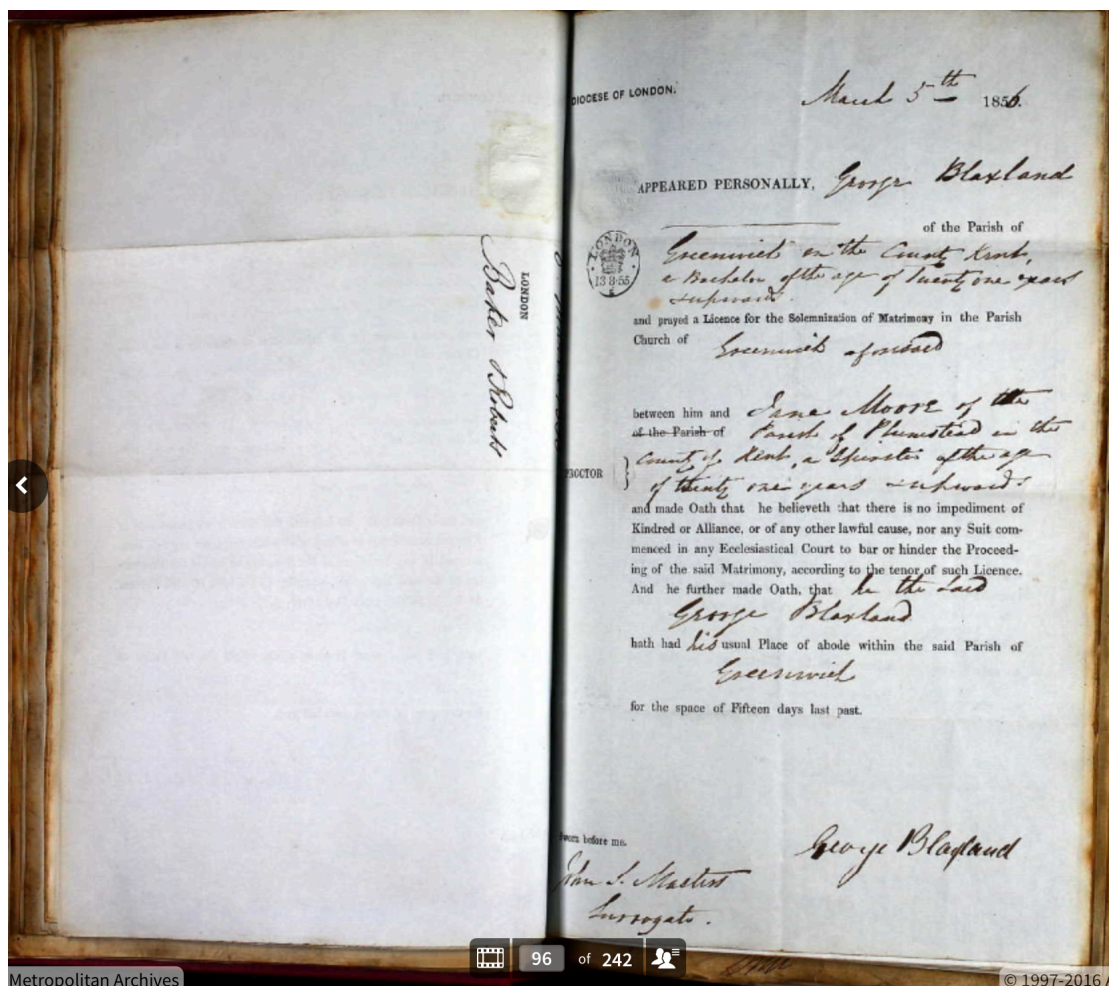 LONDON
Baker & Roberts
DIOCESE OF LONDON.
March 5th 1856.
APPEARED PERSONALLY, George Blaxland
of the Parish of
Greenwich in the County Kent,
a Bachelor of the age of Twenty one years
& upwards.
LONDON
13 8 55
and prayed a Licence for the Solemnization of Matrimony in the Parish
Church of Greenwich aforesaid
between him and Jane Moore of the
of the Parish of Parish of Plumstead in the
County of Kent, a Spinster of the age
of twenty one years & upwards
PROCTOR
and made Oath that he believeth that there is no impediment of
Kindred or Alliance, or of any other lawful cause, nor any Suit com-
menced in any Ecclesiastical Court to bar or hinder the Proceed-
ing of the said Matrimony, according to the tenor of such Licence.
And he further made Oath, that he the said
George Blaxland
hath had his usual Place of abode within the said Parish of
Greenwich
for the space of Fifteen days last past.
before me.
George Blaxland
John S. Masters
Surrogate.
96 of 242
Metropolitan Archives
© 1997-2016